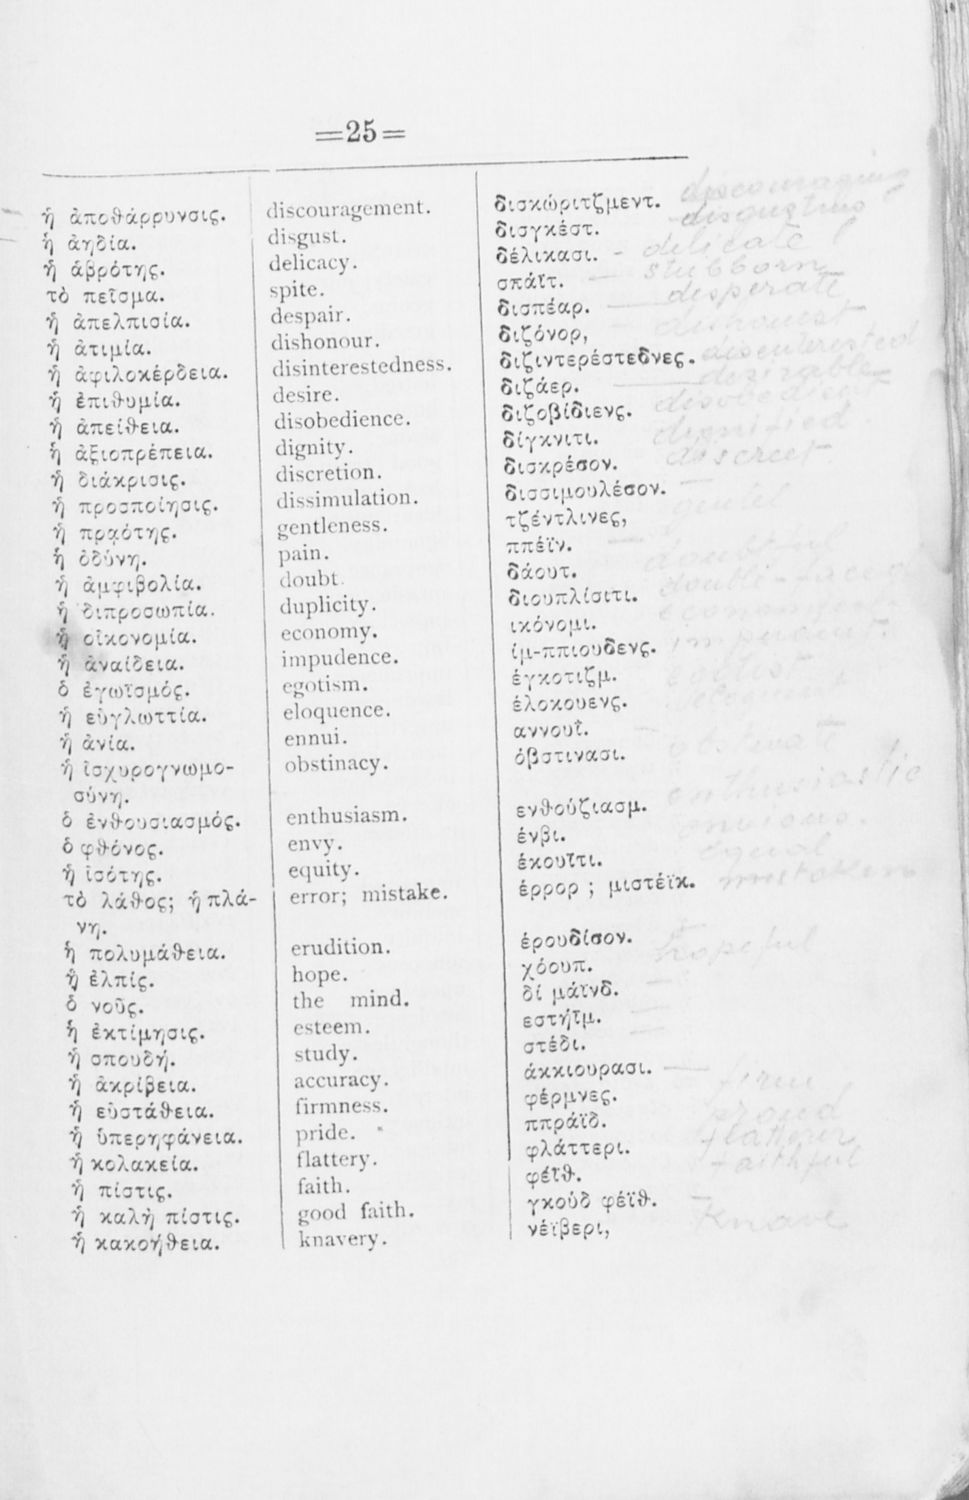 =25=
ἡ ἀποθάρρυνσις. discouragement. δισκώριτζμεντ. discouraging
ἡ ἀηδία. disgust. δισγκέστ. disgusting
ἡ ἁβρότης. delicacy. δέλικασι. - delicate
τὸ πεῖσμα. spite. σπάϊτ. — stubborn
ἡ ἀπελπισία. despair. δισπέαρ. — desperate
ἡ ἀτιμία. dishonour. διζόνορ, dishonest
ἡ ἀφιλοκέρδεια. disinterestedness. διζιντερέστεδνες. disenterested
ἡ ἐπιθυμία. desire. διζάερ. — dezirable
ἡ ἀπείθεια. disobedience. διζοβίδιενς. disobedient
ἡ ἀξιοπρέπεια. dignity. δίγκνιτι. dignified.
ἡ διάκρισις. discretion. δισκρέσον. discreet.
ἡ προσποίησις. dissimulation. δισσιμουλέσον.
ἡ πραότης. gentleness. τζέντλινες,
ἡ ὀδύνη. pain. ππέϊν.
ἡ ἀμφιβολία. doubt. δάουτ. doubtful
ἡ διπροσωπία. duplicity. διουπλίσιτι. double-faced
ἡ οἰκονομία. economy. ικόνομι.
ἡ ἀναίδεια. impudence. ίμ-ππιουδενς. impudent.
ὁ ἐγωϊσμός. egotism. έγκοτιζμ. egotist
ἡ εὐγλωττία. eloquence. έλοκουενς.
ἡ ἀνία. ennui. αννουΐ.
ἡ ἰσχυρογνωμο- obstinacy. όβστινασι. obstinate
σύνη.
ὁ ἐνθουσιασμός. enthusiasm. ενθούζιασμ. enthusiastic
ὁ φθόνος. envy. ένβι. envious.
ἡ ἰσότης. equity. έκουϊτι. equal
τὸ λάθος; ἡ πλά- error; mistake. έρρορ ; μιστέϊκ. mistaken
νη.
ἡ πολυμάθεια. erudition. έρουδίσον.
ἡ ἐλπίς. hope. χόουπ. hopeful
ὁ νοῦς. the mind. δί μάϊνδ.
ἡ ἐκτίμησις. esteem. εστήϊμ.
ἡ σπουδή. study. στέδι.
ἡ ἀκρίβεια. accuracy. άκκιουρασι. —
ἡ εὐστάθεια. firmness. φέρμνες. firm
ἡ ὑπερηφάνεια. pride. ππράϊδ. proud
ἡ κολακεία. flattery. φλάττερι. flatterer
ἡ πίστις. faith. φέϊθ. faithful
ἡ καλὴ πίστις. good faith. γκούδ φέϊθ.
ἡ κακοήθεια. knavery. νέϊβερι, Knave